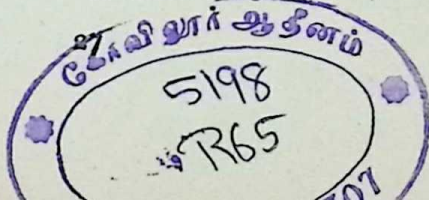 கோவிலூர் ஆதீனம்
5198
R65
307